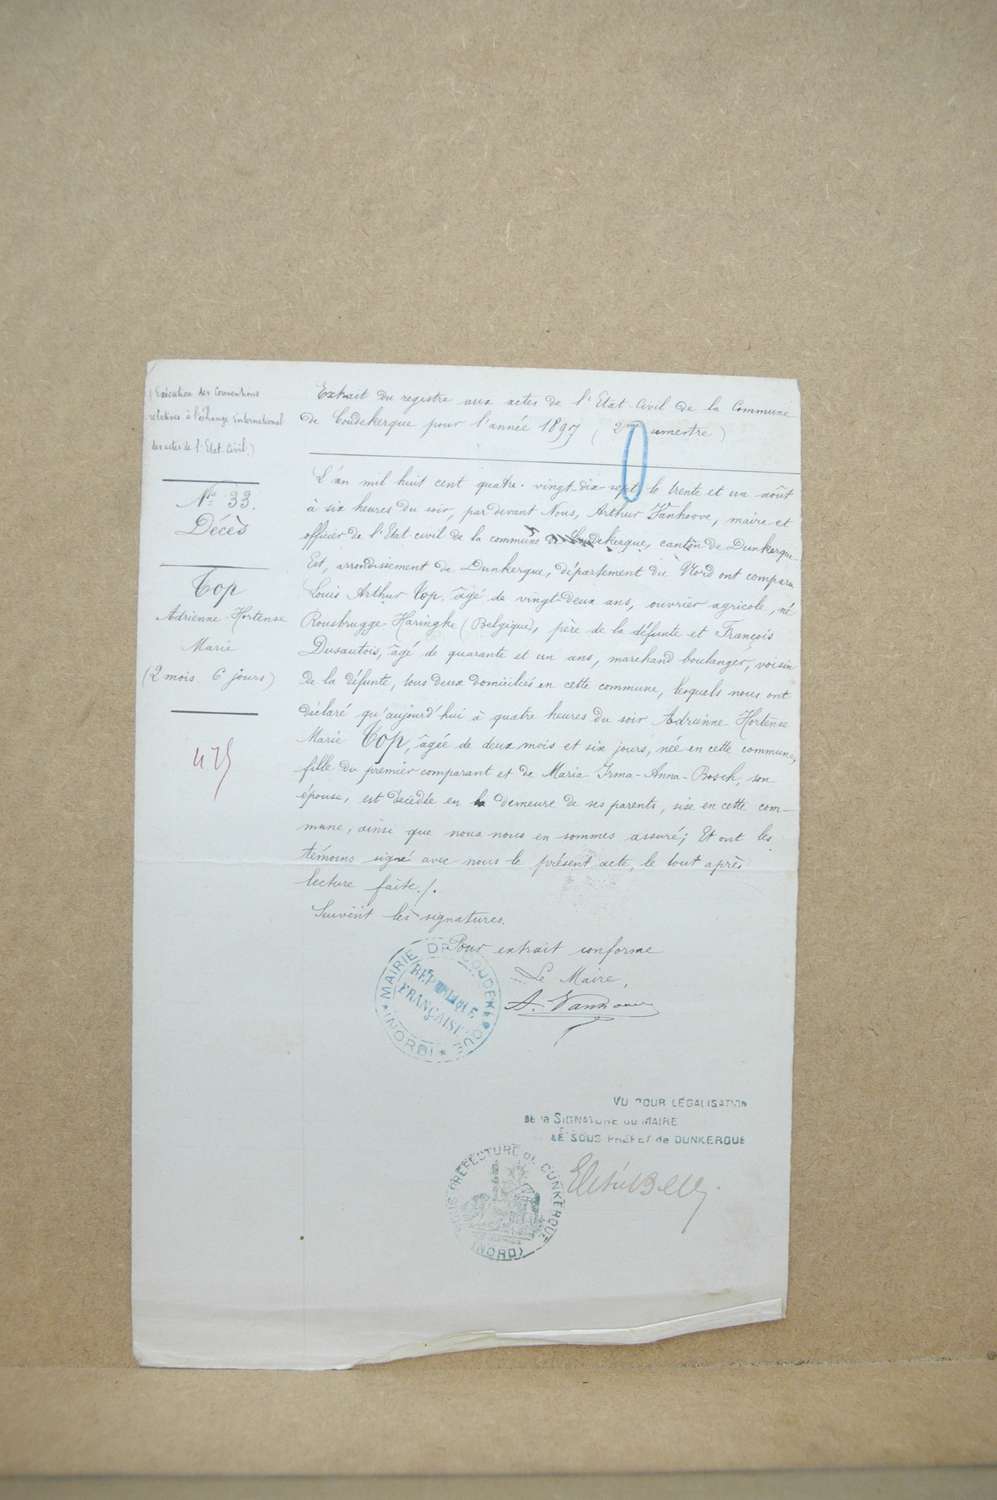 (Exécution des Conventions
relatives à l'échange International
des actes de l'Etat Civil.)
N° 33.
Décès
Top
Adrienne Hortense
Marie
(2 mois 6 jours)
475
Extrait du registre aux actes de l'Etat Civil de la Commune
de Coudekerque pour l'année 1897 (2me semestre)
L'an mil huit cent quatre-vingt-dix sept le trente et un août
à six heures du soir, par devant Nous, Arthur Vanhoove, maire et
officier de l'Etat civil de la commune de Coudekerque, canton de Dunkerque
Est, arrondissement de Dunkerque, département du Nord ont comparu
Louis Arthur Top, âgé de vingt-deux ans, ouvrier agricole, né
Rousbrugge-Haringhe (Belgique), père de la défunte et François
Dusautois, âgé de quarante et un ans, marchand boulanger, voisin
de la défunte, tous deux domiciliés en cette commune, lesquels nous ont
déclaré qu'aujourd'hui à quatre heures du soir Adrienne Hortense
Marie Top, âgée de deux mois et six jours, née en cette commune,
fille du premier comparant et de Maria-Irma-Anna-Bosch, son
épouse, est décédée en la demeure de ses parents, sise en cette com-
mune, ainsi que nous nous en sommes assuré; Et ont les
témoins signé avec nous le présent acte, le tout après
lecture faite./.
Suivent les signatures.
Pour extrait conforme
Le Maire,
A. Vanhoove
MAIRIE DE COUDEKERQUE
RÉPUBLIQUE
FRANÇAISE
(NORD)
VU POUR LÉGALISATION
de la SIGNATURE du MAIRE
LE SOUS PRÉFET de DUNKERQUE
SOUS-PRÉFECTURE DE DUNKERQUE
(NORD)